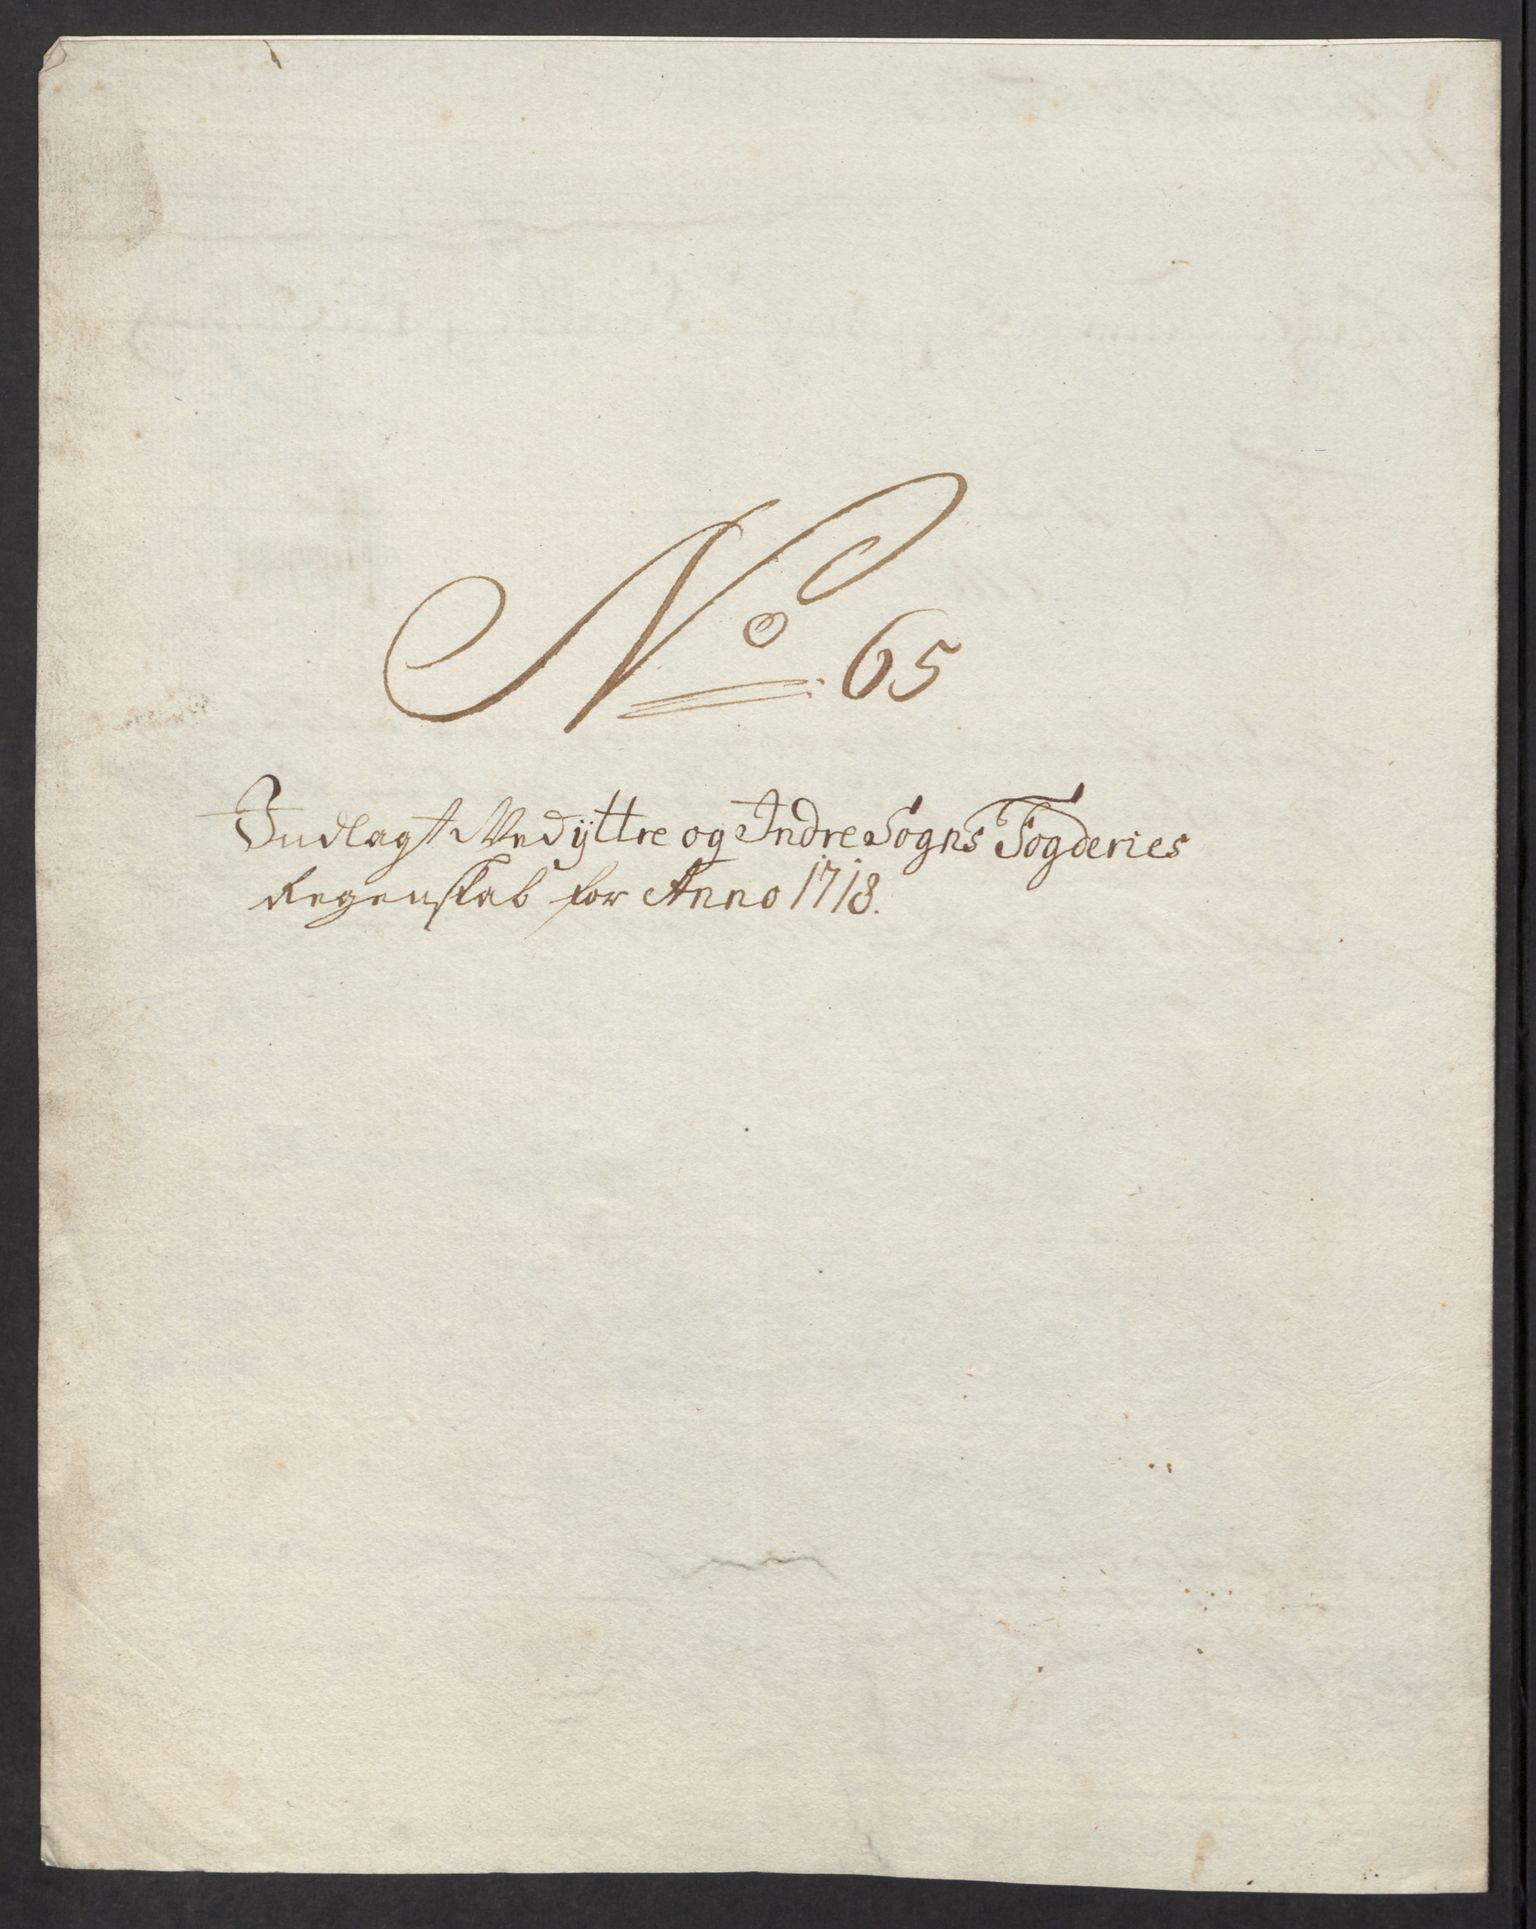 No. 65
Indlagt Ved ÿttre og Indre Sogns Fogderies
Regenskab for Anno 1718.